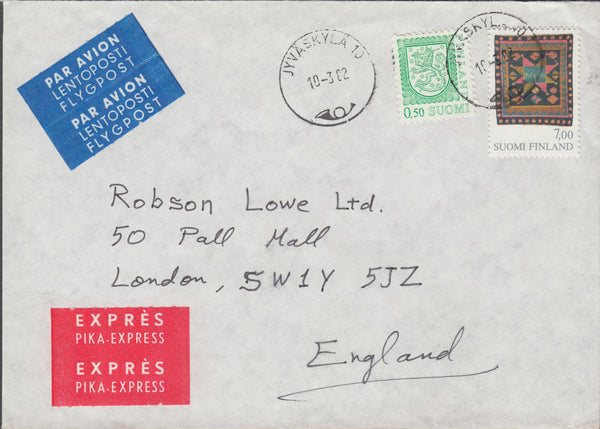 PAR AVION
LENTOPOSTI
FLYGPOST
PAR AVION
LENTOPOSTI
FLYGPOST
JYVÄSKYLÄ 10
10-3.82
0,50 SUOMI
JYVÄSKYLÄ 10
10-3.82
7,00
SUOMI FINLAND
Robson Lowe Ltd.
50 Pall Mall
London, SW1Y 5JZ
England
EXPRÈS
PIKA-EXPRESS
EXPRÈS
PIKA-EXPRESS